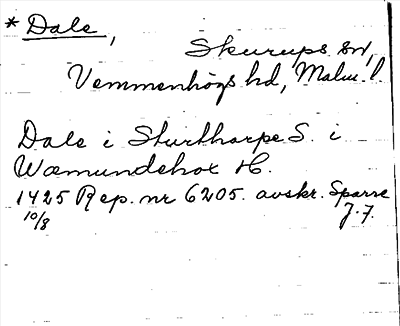 * Dale,
Skurups sn,
Vemmenhögs hd, Malm. l.
Dale i Sturthorpe S. i
Wæmundehox H.
1425 Rep. nr 6205. avskr. Sparre
10/8 J. F.